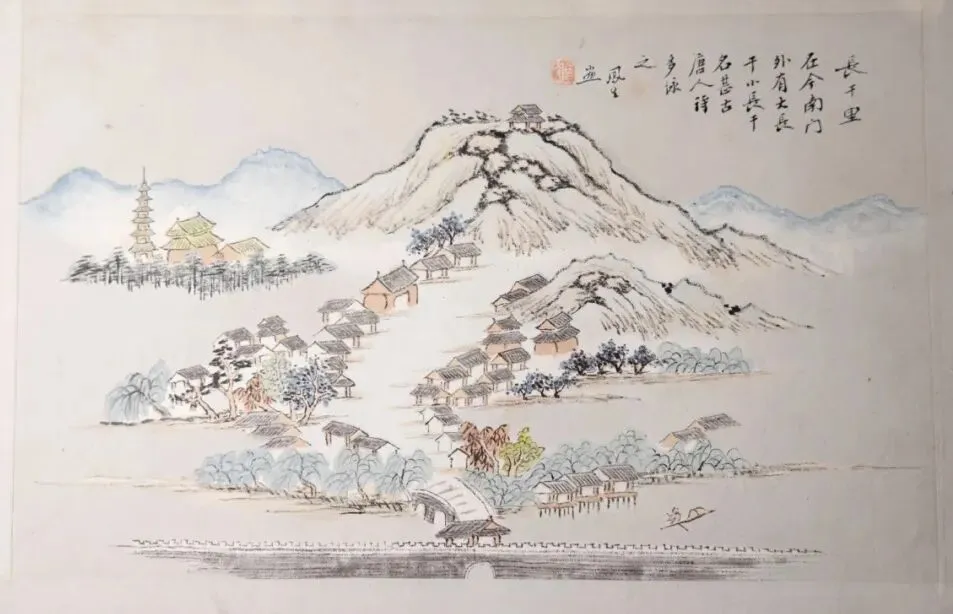 長干里
在今南门
外有大長
干小長干
名甚古
唐人詩
多詠
之
生
画